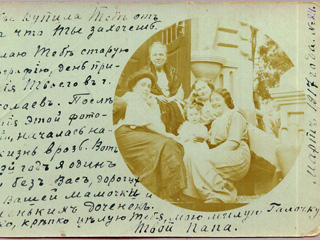 купила Тебѣ отъ
а что Ты захочешь.
лаю Тебѣ старую
графію, день прі-
ія Твоего въ г.
колаевъ. Послѣ
ія этой фото-
, началась на-
жизнь врозь. Вотъ
й годъ я одинъ
й безъ Васъ, дорогихъ
Вашей мамочки и
енькихъ доченекъ.
о, крѣпко цѣлую Тебя, мою милую Галочку
Твой Папа.
Мартъ 1917 года.